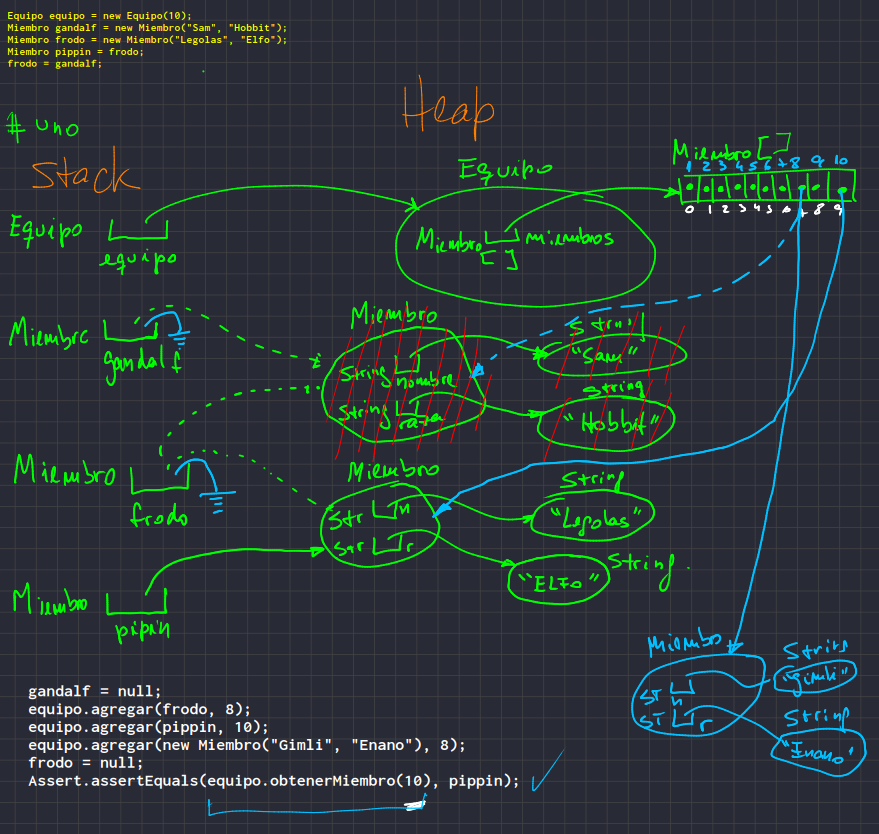 Equipo equipo = new Equipo(10);
Miembro gandalf = new Miembro("Sam", "Hobbit");
Miembro frodo = new Miembro("Legolas", "Elfo");
Miembro pippin = frodo;
frodo = gandalf;
Heap
# uno
Stack
Miembro []
1 2 3 4 5 6 7 8 9 10
0 1 2 3 4 5 6 7 8 9
Equipo
Equipo
equipo
Miembro [] miembros
Miembro
Miembro
gandalf
String
"Sam"
String nombre
String
String raza
"Hobbit"
Miembro
frodo
Miembro
Str n
Str r
String
"Legolas"
"ELFO"
String
Miembro
pipin
Miembro
ST n
ST r
String
"Gimli"
String
"Enano"
gandalf = null;
equipo.agregar(frodo, 8);
equipo.agregar(pippin, 10);
equipo.agregar(new Miembro("Gimli", "Enano"), 8);
frodo = null;
Assert.assertEquals(equipo.obtenerMiembro(10), pippin);